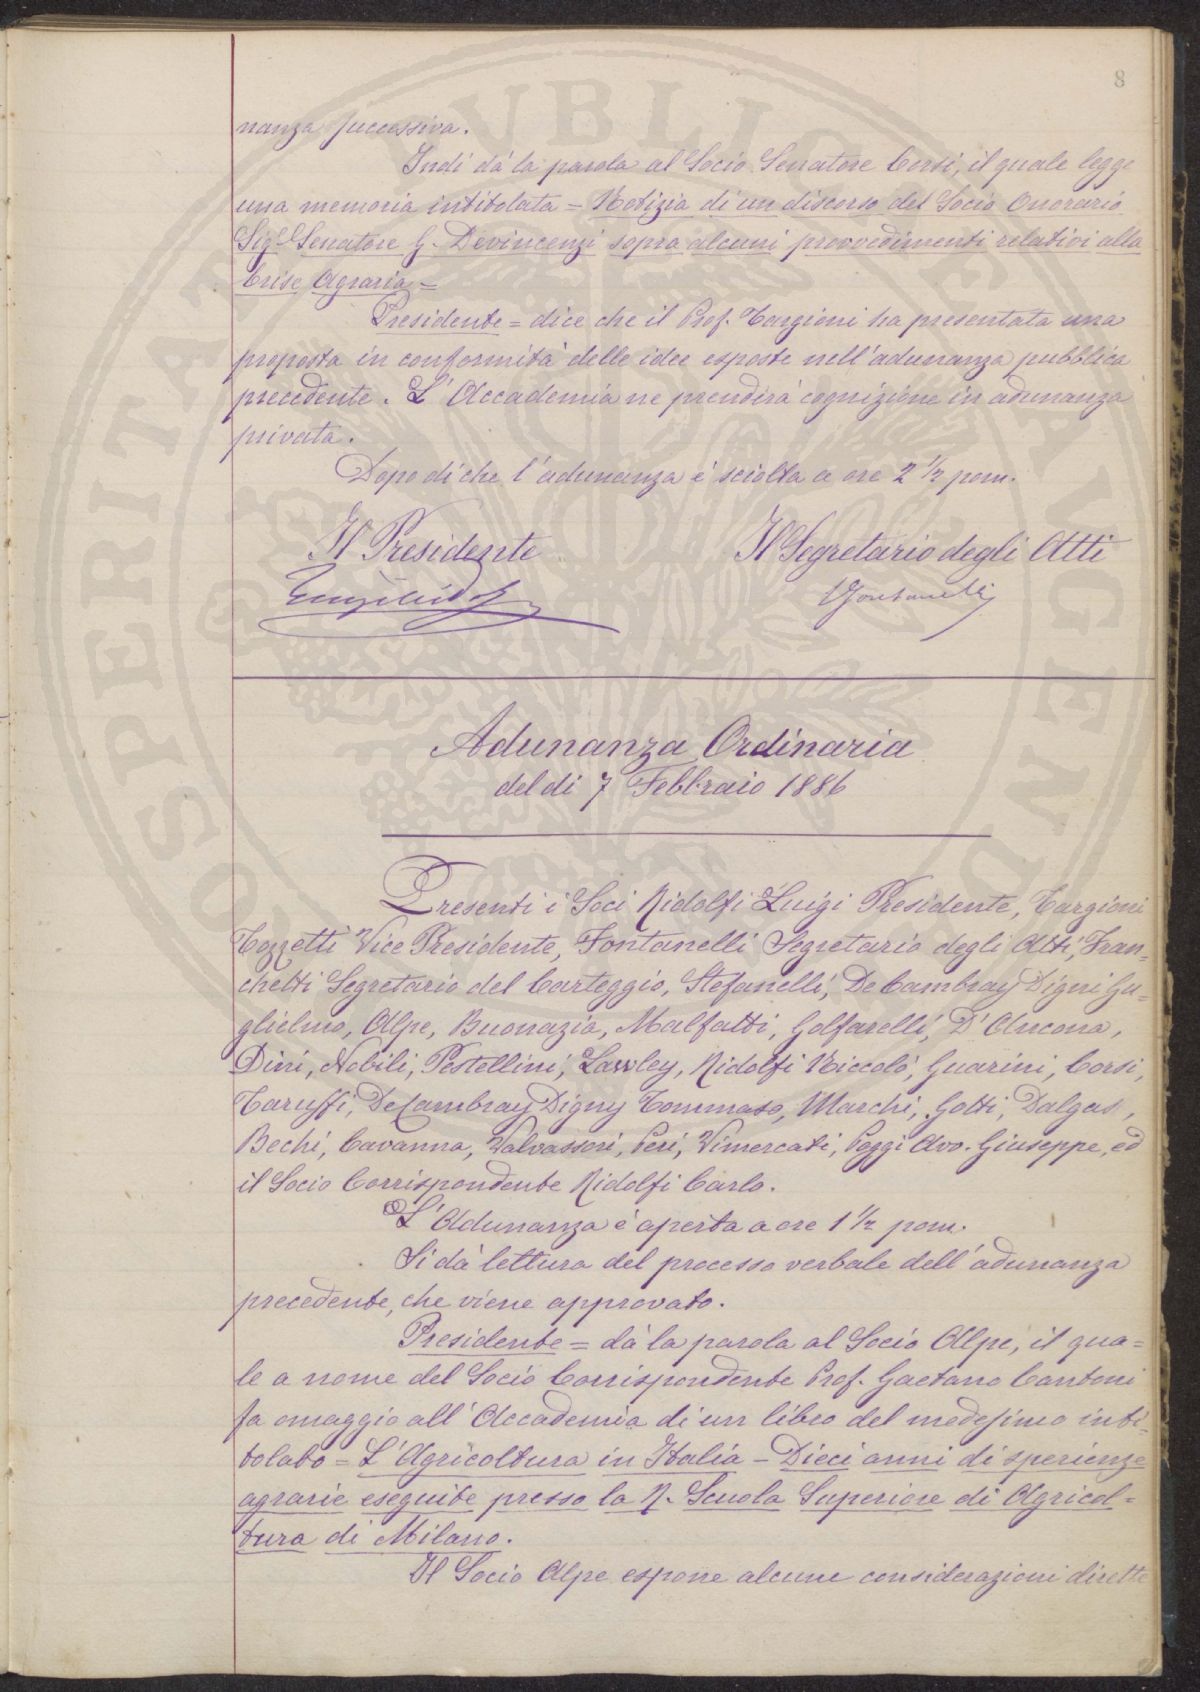 8
nanza successiva.
Indi dà la parola al Socio Senatore Corsi, il quale legge
una memoria intitolata = Notizia di un discorso del Socio Onorario
Sigr. Senatore G. Devincenzi sopra alcuni provvedimenti relativi alla
Crise Agraria =
Presidente = dice che il Prof. Targioni ha presentata una
proposta in conformità delle idee esposte nell'adunanza pubblica
precedente. L'Accademia ne prenderà cognizione in adunanza
privata.
Dopo di che l'adunanza è sciolta a ore 2 1/2 pom.
Il Presidente
Il Segretario degli Atti
Luigi Ridolfi
CFontanelli
Adunanza Ordinaria
del di 7 Febbraio 1886
Presenti i Soci Ridolfi Luigi Presidente, Targioni
Tozzetti Vice Presidente, Fontanelli Segretario degli Atti, Fran=
chetti Segretario del Carteggio, Stefanelli, De Cambray Digni Gu=
glielmo, Alpe, Buonazia, Malfatti, Golfarelli, D'Ancona,
Dini, Nobili, Pestellini, Lawley, Ridolfi Niccolò, Guarini, Corsi,
Caruffi, De Cambray Digny Tommaso, Marchi, Gotti, Dalgas,
Bechi, Cavanna, Valvassori, Peri, Vimercati, Poggi Avv. Giuseppe, ed
il Socio Corrispondente Ridolfi Carlo.
L'Adunanza è aperta a ore 1 1/2 pom.
Si dà lettura del processo verbale dell'adunanza
precedente, che viene approvato.
Presidente = dà la parola al Socio Alpe, il qua=
le a nome del Socio Corrispondente Prof. Gaetano Cantoni
fa omaggio all'Accademia di un libro del medesimo inti=
tolato = L'Agricoltura in Italia - Dieci anni di sperienze
agrarie eseguite presso la R. Scuola Superiore di Agricol=
tura di Milano.
Il Socio Alpe espone alcune considerazioni dirette
PROSPERITATI PUBLICAE AUGENDAE